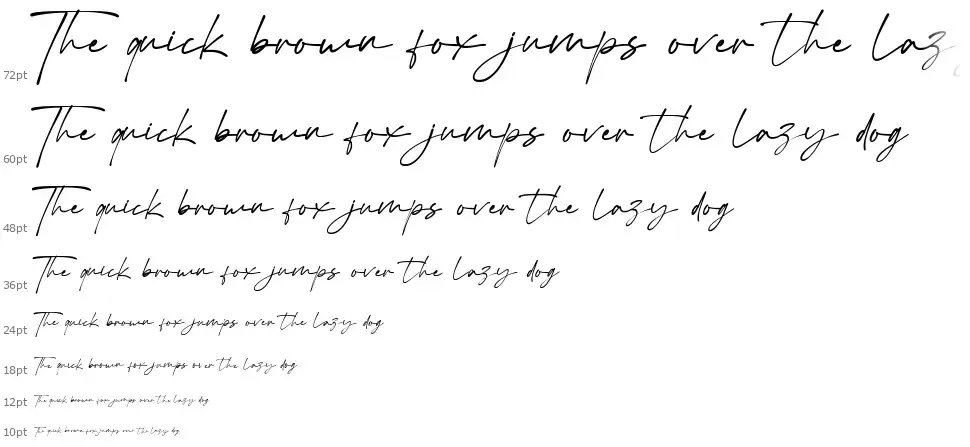 72pt The quick brown fox jumps over the laz
60pt The quick brown fox jumps over the lazy dog
48pt The quick brown fox jumps over the lazy dog
36pt The quick brown fox jumps over the lazy dog
24pt The quick brown fox jumps over the lazy dog
18pt The quick brown fox jumps over the lazy dog
12pt The quick brown fox jumps over the lazy dog
10pt The quick brown fox jumps over the lazy dog